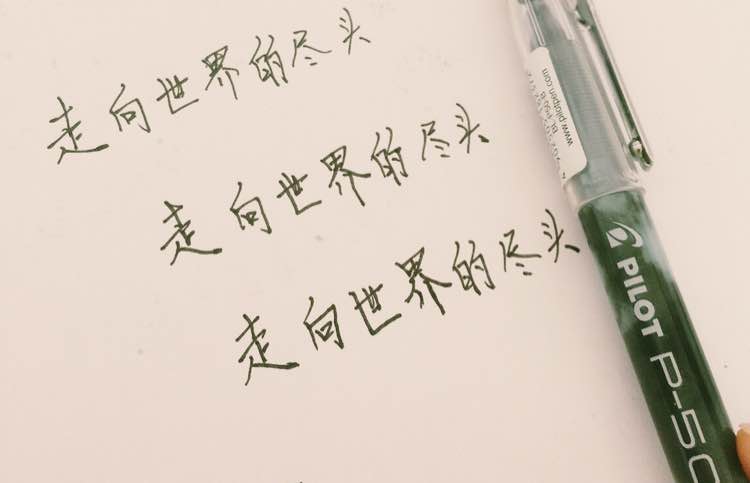 走向世界的尽头
走向世界的尽头
走向世界的尽头
www.pilotpen.com
PILOT
P-50